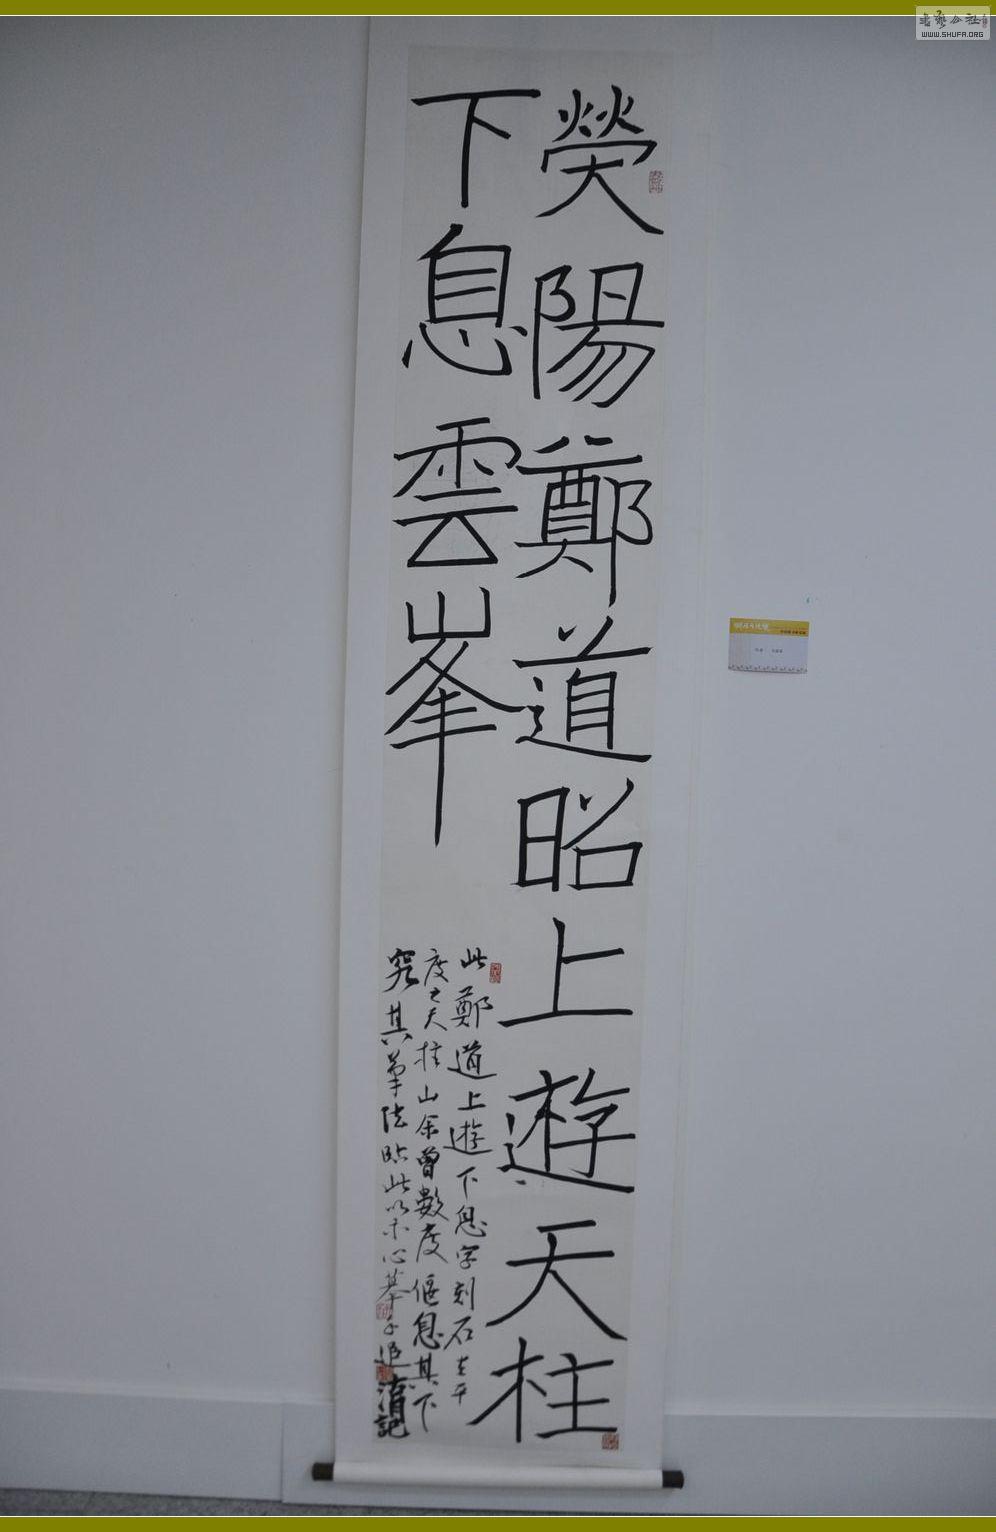 荥陽鄭道昭上遊天柱
下息雲峯
此鄭道上遊下息字刻石在平
度之天柱山余曾數度偃息其下
究其筆法臨此以示心摹手追 清記
WWW.SHUFA.ORG